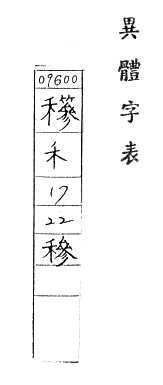 異體字表
09600
禾
17
22
穇